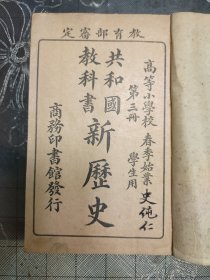 教育部審定
高等小學校 春季始業
第三冊 學生用
史純仁
共和國
教科書
新歷史
商務印書館發行